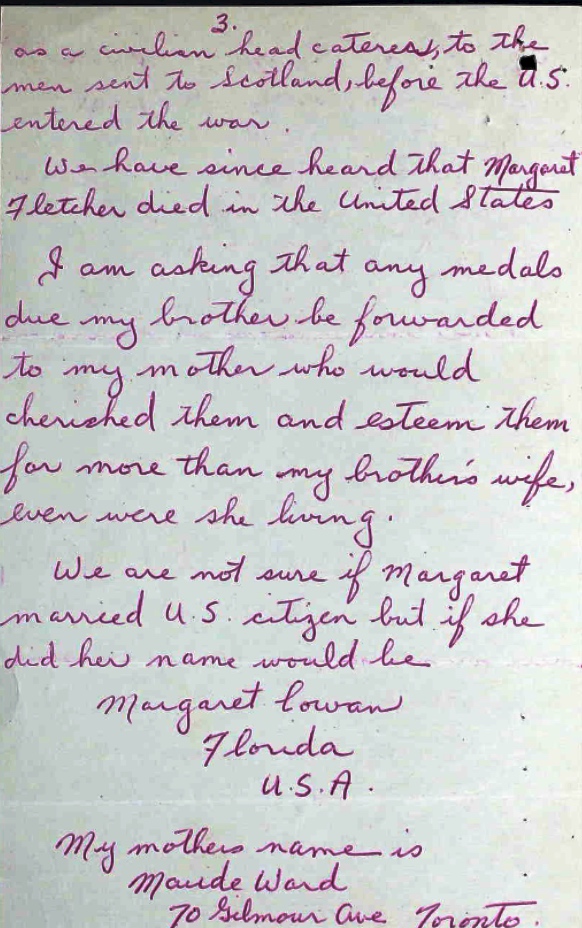 3.
as a civilian head caterer, to the
men sent to Scotland, before the U.S.
entered the war.
We have since heard that Margaret
Fletcher died in the United States
I am asking that any medals
due my brother be forwarded
to my mother who would
cherished them and esteem them
far more than my brother's wife,
even were she living.
We are not sure if Margaret
married U.S. citizen but if she
did her name would be
Margaret Cowan
Florida
U.S.A.
My mothers name is
Maude Ward
70 Gilmour Ave Toronto.